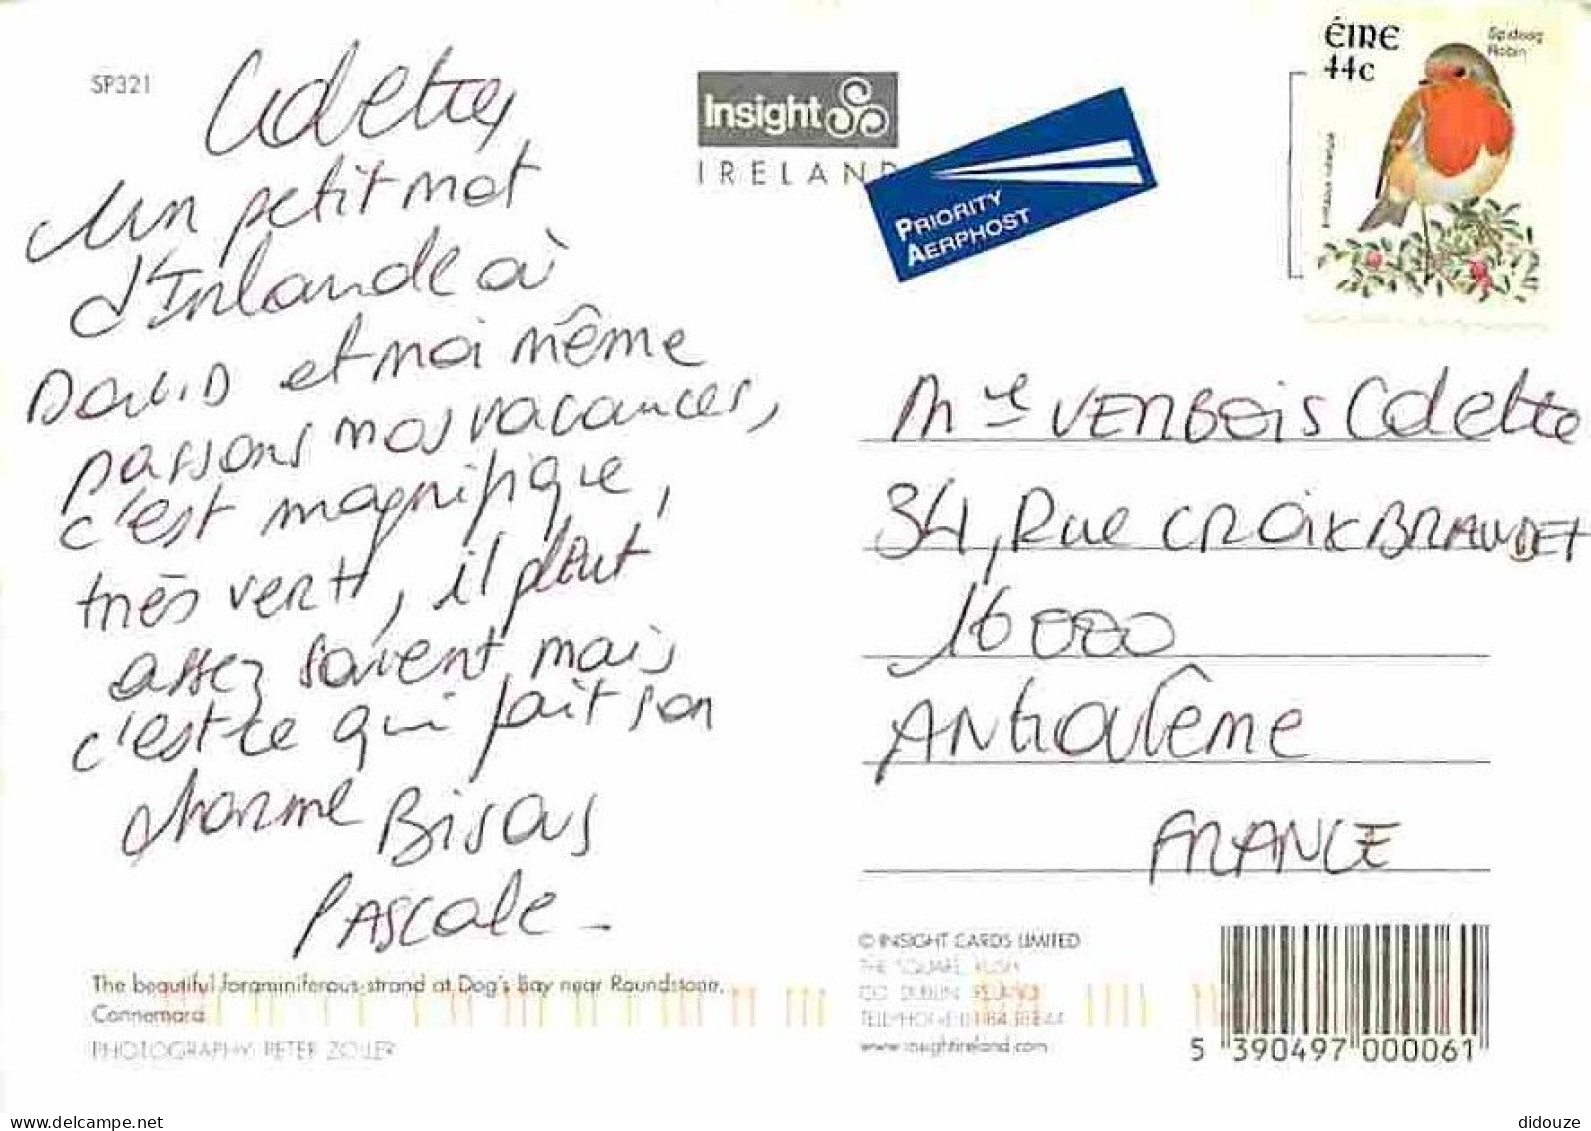 SP321
Colette,
Un petit mot
d'Irlande où
DAVID et moi même
passons nos vacances,
c'est magnifique,
très vert, il pleut
assez souvent mais
c'est ce qui fait son
charme Bisous
PASCALE -
The beautiful foraminiferous strand at Dog's Bay near Roundstone,
Connemara
PHOTOGRAPHY: PETER ZOLLER
Insight
IRELAND
PRIORITY
AERPHOST
ÉIRE
44c
Spideog
Robin
Mme VERBOIS Colette
34, Rue CROIX BRANDET
16000
ANGOULÊME
FRANCE
© INSIGHT CARDS LIMITED
THE SQUARE, RUSH
CO. DUBLIN, IRELAND
www.insightireland.com
5 390497 000061
didouze